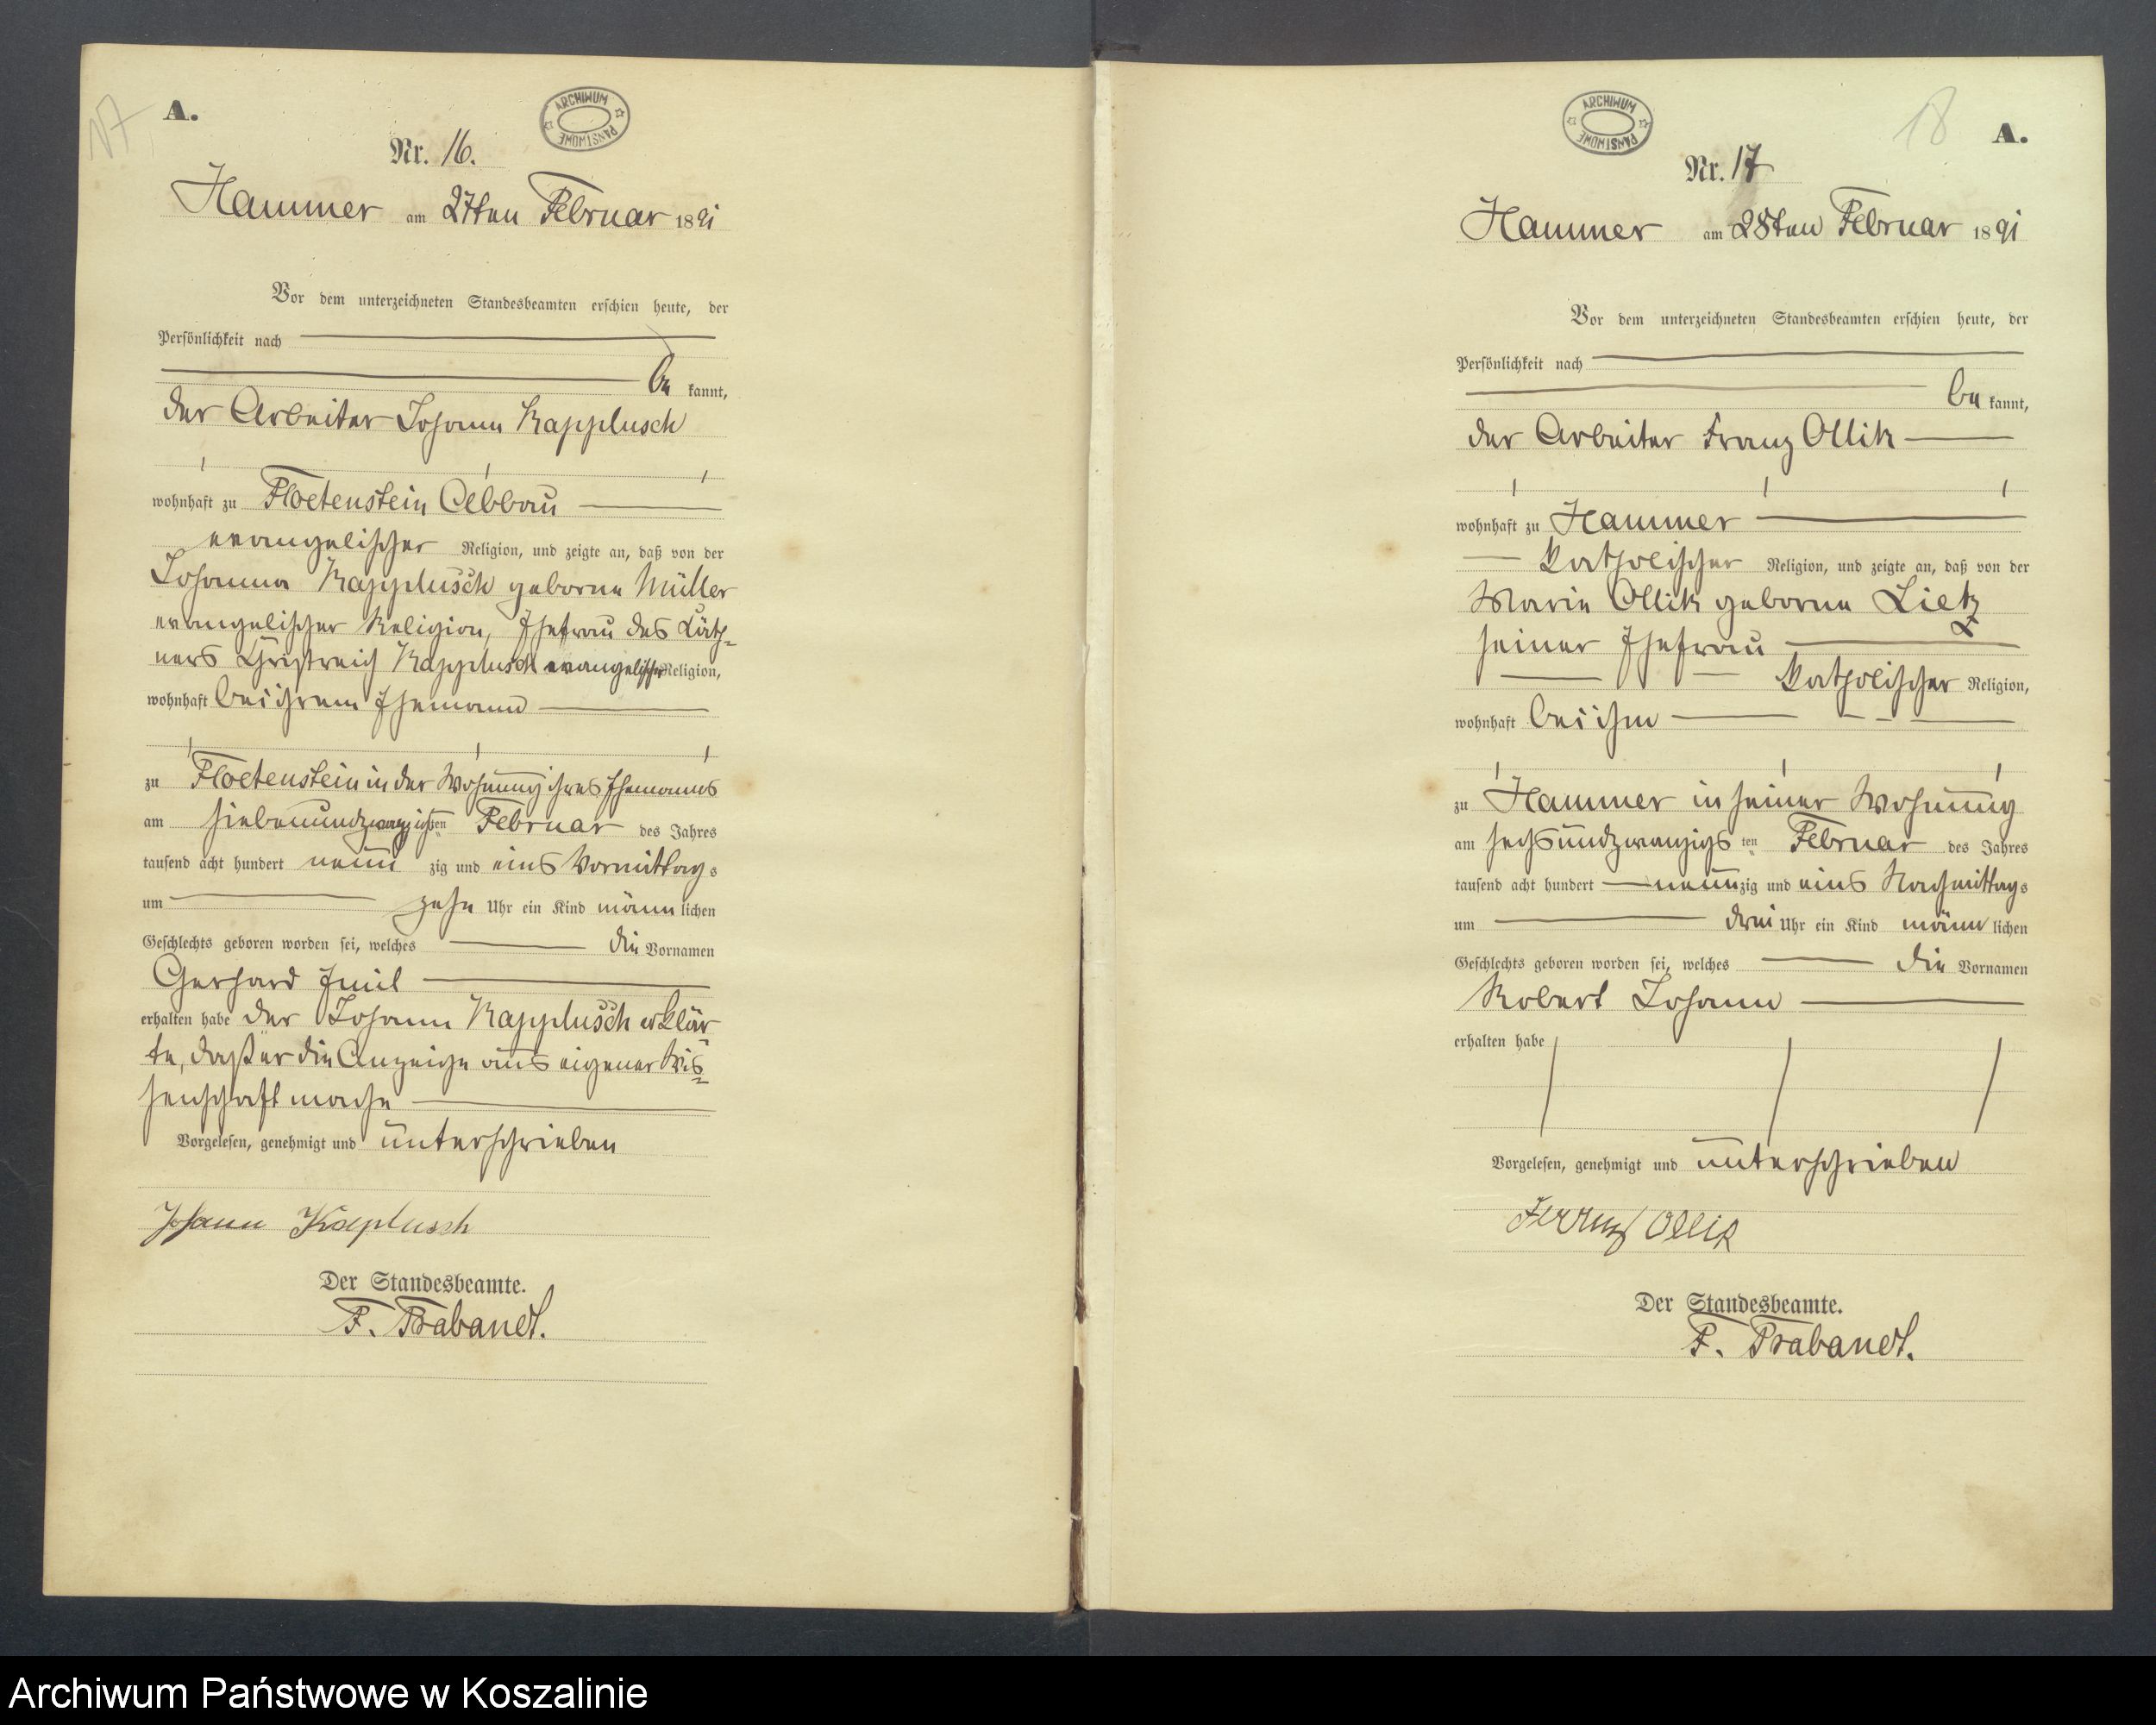 17
A.
ARCHIWUM PAŃSTWOWE
Nr. 16.
Hammer am 27ten Februar 1891
Vor dem unterzeichneten Standesbeamten erschien heute, der
Persönlichkeit nach
be kannt,
der Arbeiter Johann Kapplusch
wohnhaft zu Floetenstein Abbau
evangelischer Religion, und zeigte an, daß von der
Johanna Kapplusch geborne Müller
evangelischer Religion, Ehefrau des Käth-
ners Christreich Kapplusch evangelischer Religion,
wohnhaft bei ihrem Ehemann
zu Floetenstein in der Wohnung ihres Ehemanns
am siebenundzwanzigsten Februar des Jahres
tausend acht hundert neun zig und eins Vormittags
um zehn Uhr ein Kind männlichen
Geschlechts geboren worden sei, welches die Vornamen
Gerhard Emil
erhalten habe der Johann Kapplusch erklär-
te, daß er die Anzeige aus eigener Wis-
senschaft mache
Vorgelesen, genehmigt und unterschrieben
Johann Kaplusch
Der Standesbeamte.
F. Brabandt.
18
A.
ARCHIWUM PAŃSTWOWE
Nr. 17
Hammer am 28ten Februar 1891
Vor dem unterzeichneten Standesbeamten erschien heute, der
Persönlichkeit nach
be kannt,
der Arbeiter Franz Ollik
wohnhaft zu Hammer
katholischer Religion, und zeigte an, daß von der
Marie Ollik geborne Lietz
seiner Ehefrau
katholischer Religion,
wohnhaft bei ihm
zu Hammer in seiner Wohnung
am sechsundzwanzigsten Februar des Jahres
tausend acht hundert neunzig und eins Nachmittags
um drei Uhr ein Kind männlichen
Geschlechts geboren worden sei, welches die Vornamen
Robert Johann
erhalten habe
Vorgelesen, genehmigt und unterschrieben
Franz Ollik
Der Standesbeamte.
F. Brabandt.
Archiwum Państwowe w Koszalinie